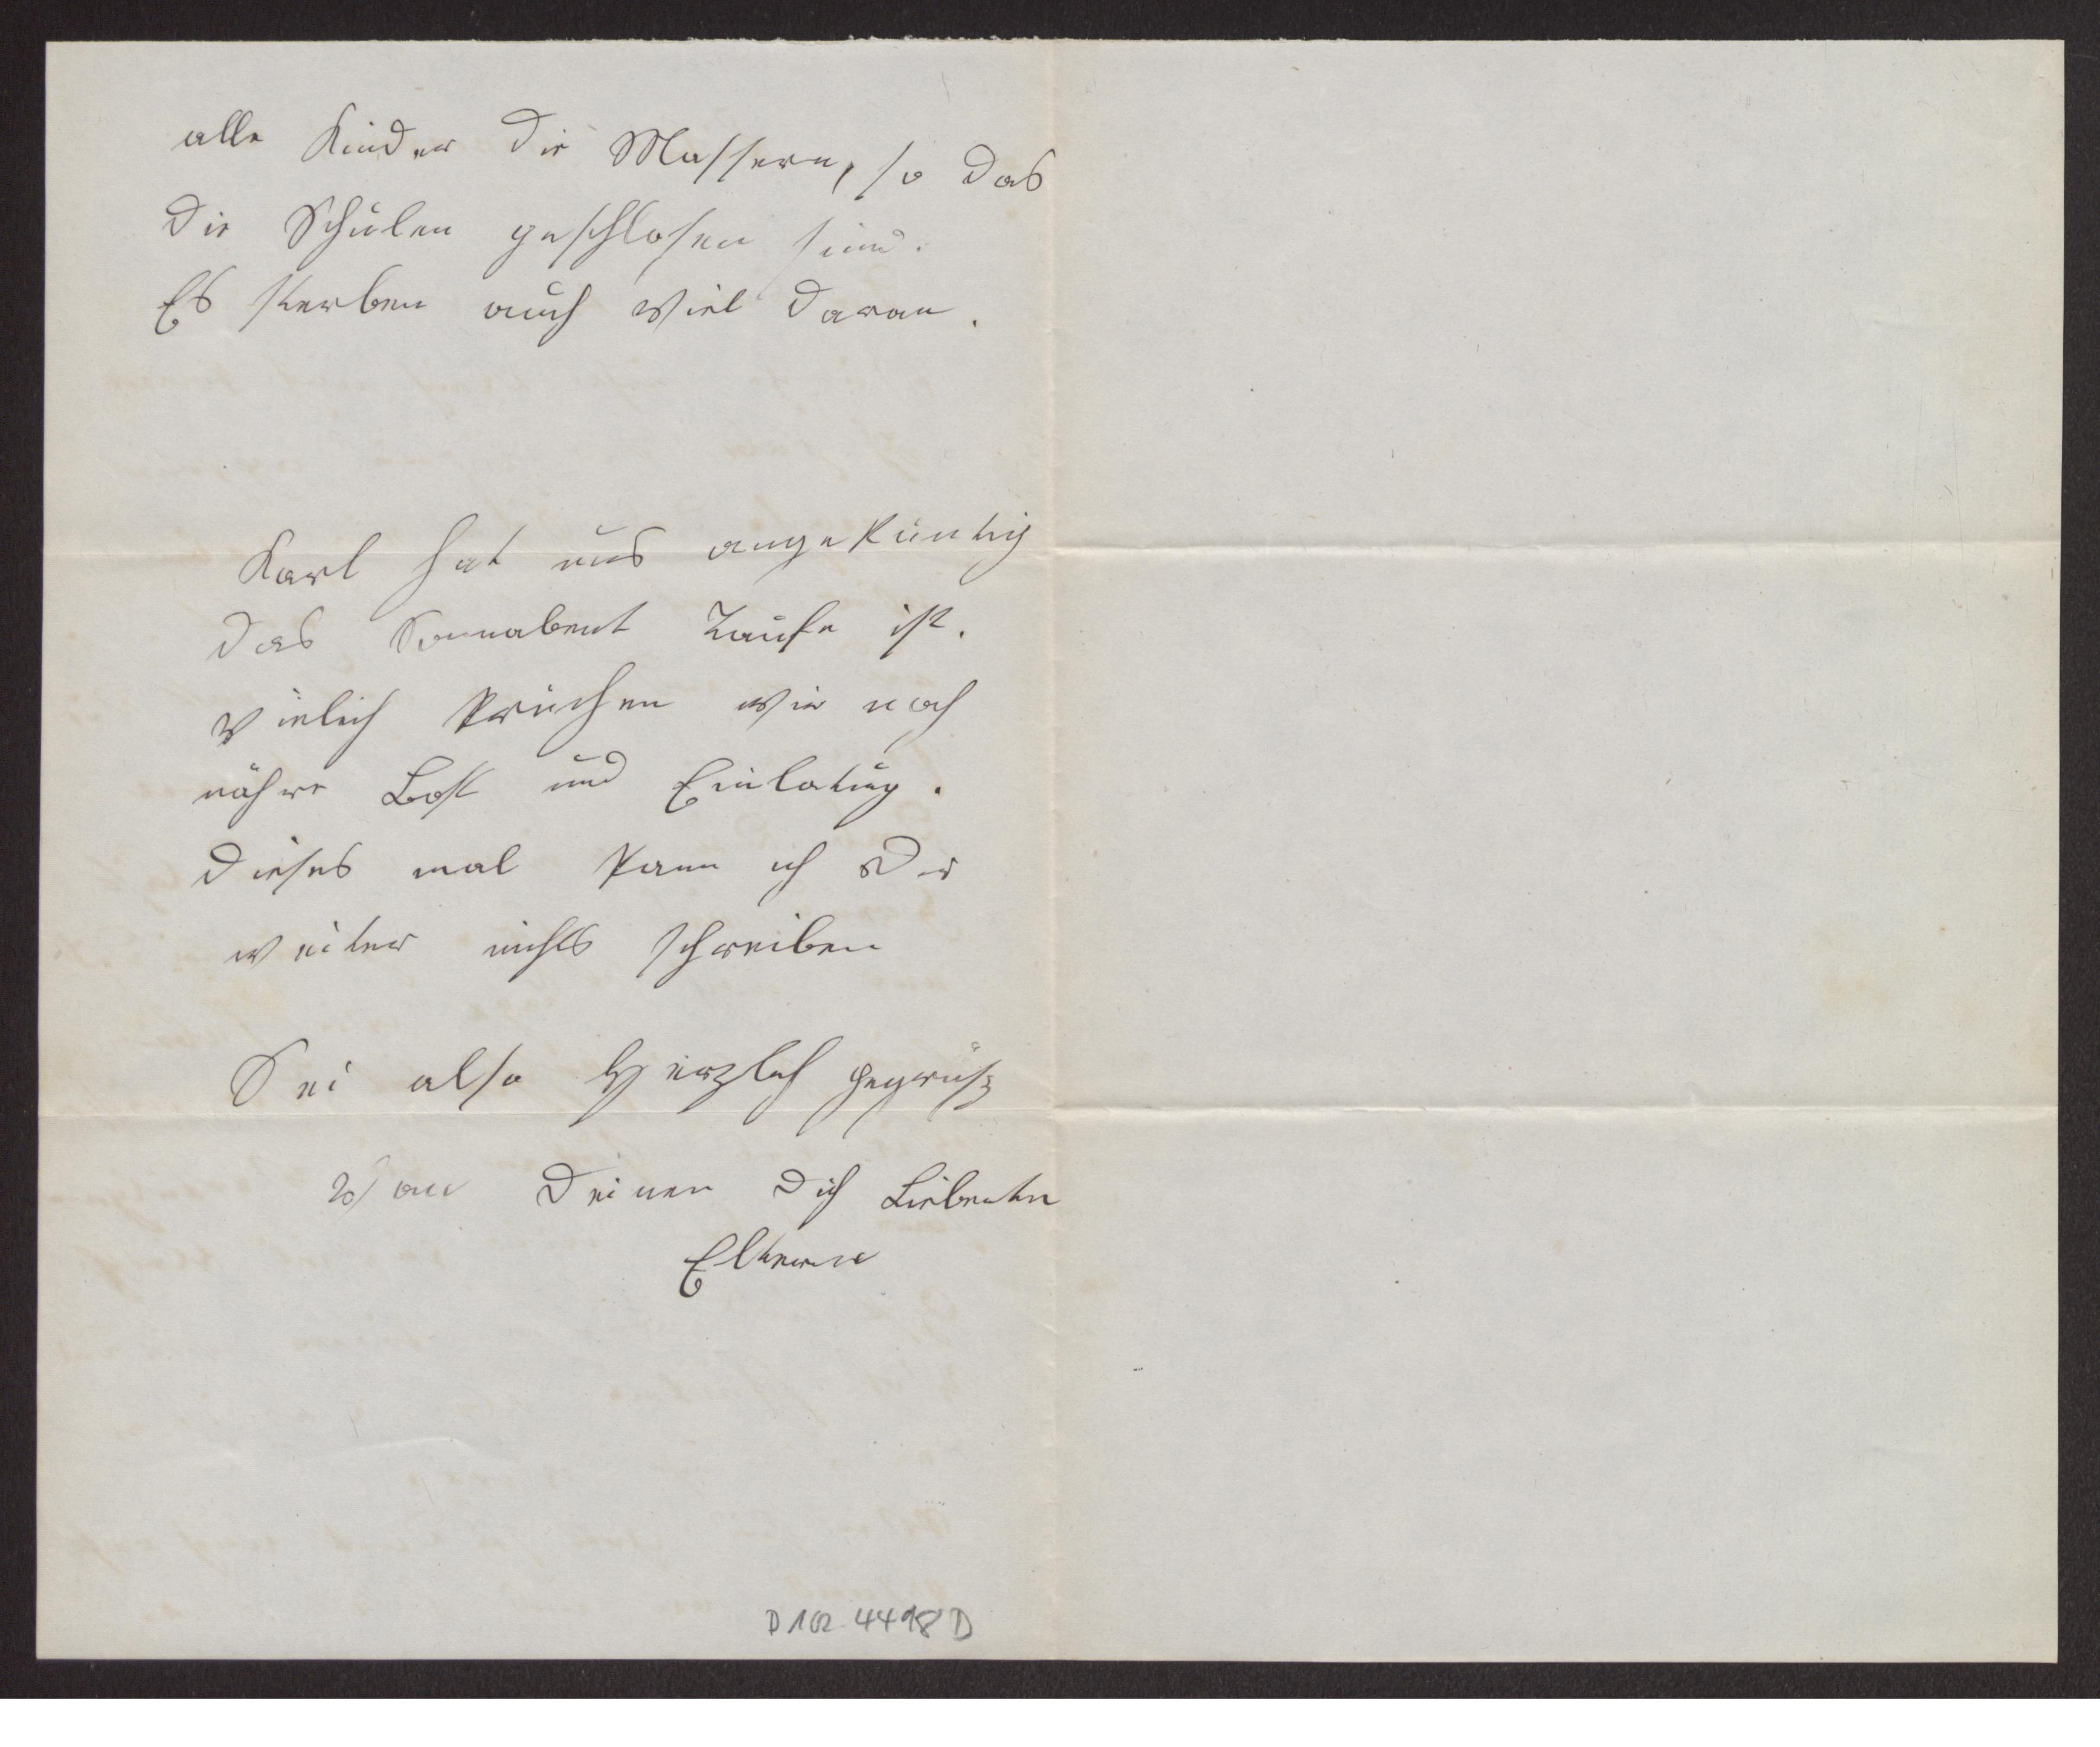 alle Kinder die Massern, so das
die Schulen geschlosen sind.
Es sterben auch viel daran.
Karl hat uns angeküntig
das Sonnabent Taufe ist.
Vieleich krüchen wir noch
nähre Post und Einlatung.
dieses mal kann ich Dir
weiter nichts schreiben
Sei also Herzlich gegrüsz
Von Deinen Dich Liebenten
Elteren
D 102 4498 D